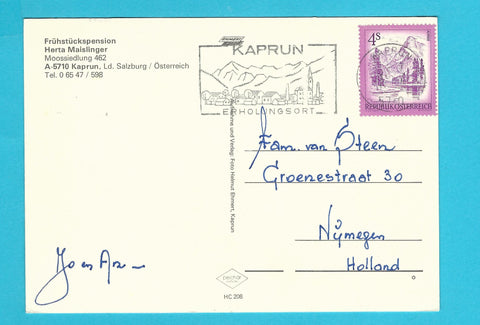 Frühstückspension
Herta Maislinger
Moossiedlung 462
A-5710 Kaprun, Ld. Salzburg / Österreich
Tel. 0 65 47 / 598
KAPRUN
ERHOLUNGSORT
4S
REPUBLIK ÖSTERREICH
Fam. van Steen
Groenestraat 30
Nijmegen
Holland
und Verlag: Foto Helmut Ehnert, Kaprun
HC 208